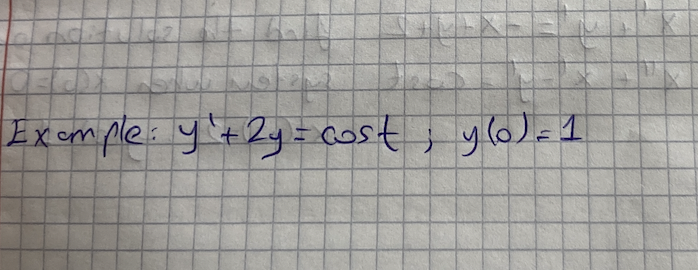 Example: y'+2y=cost ; y(0)=1